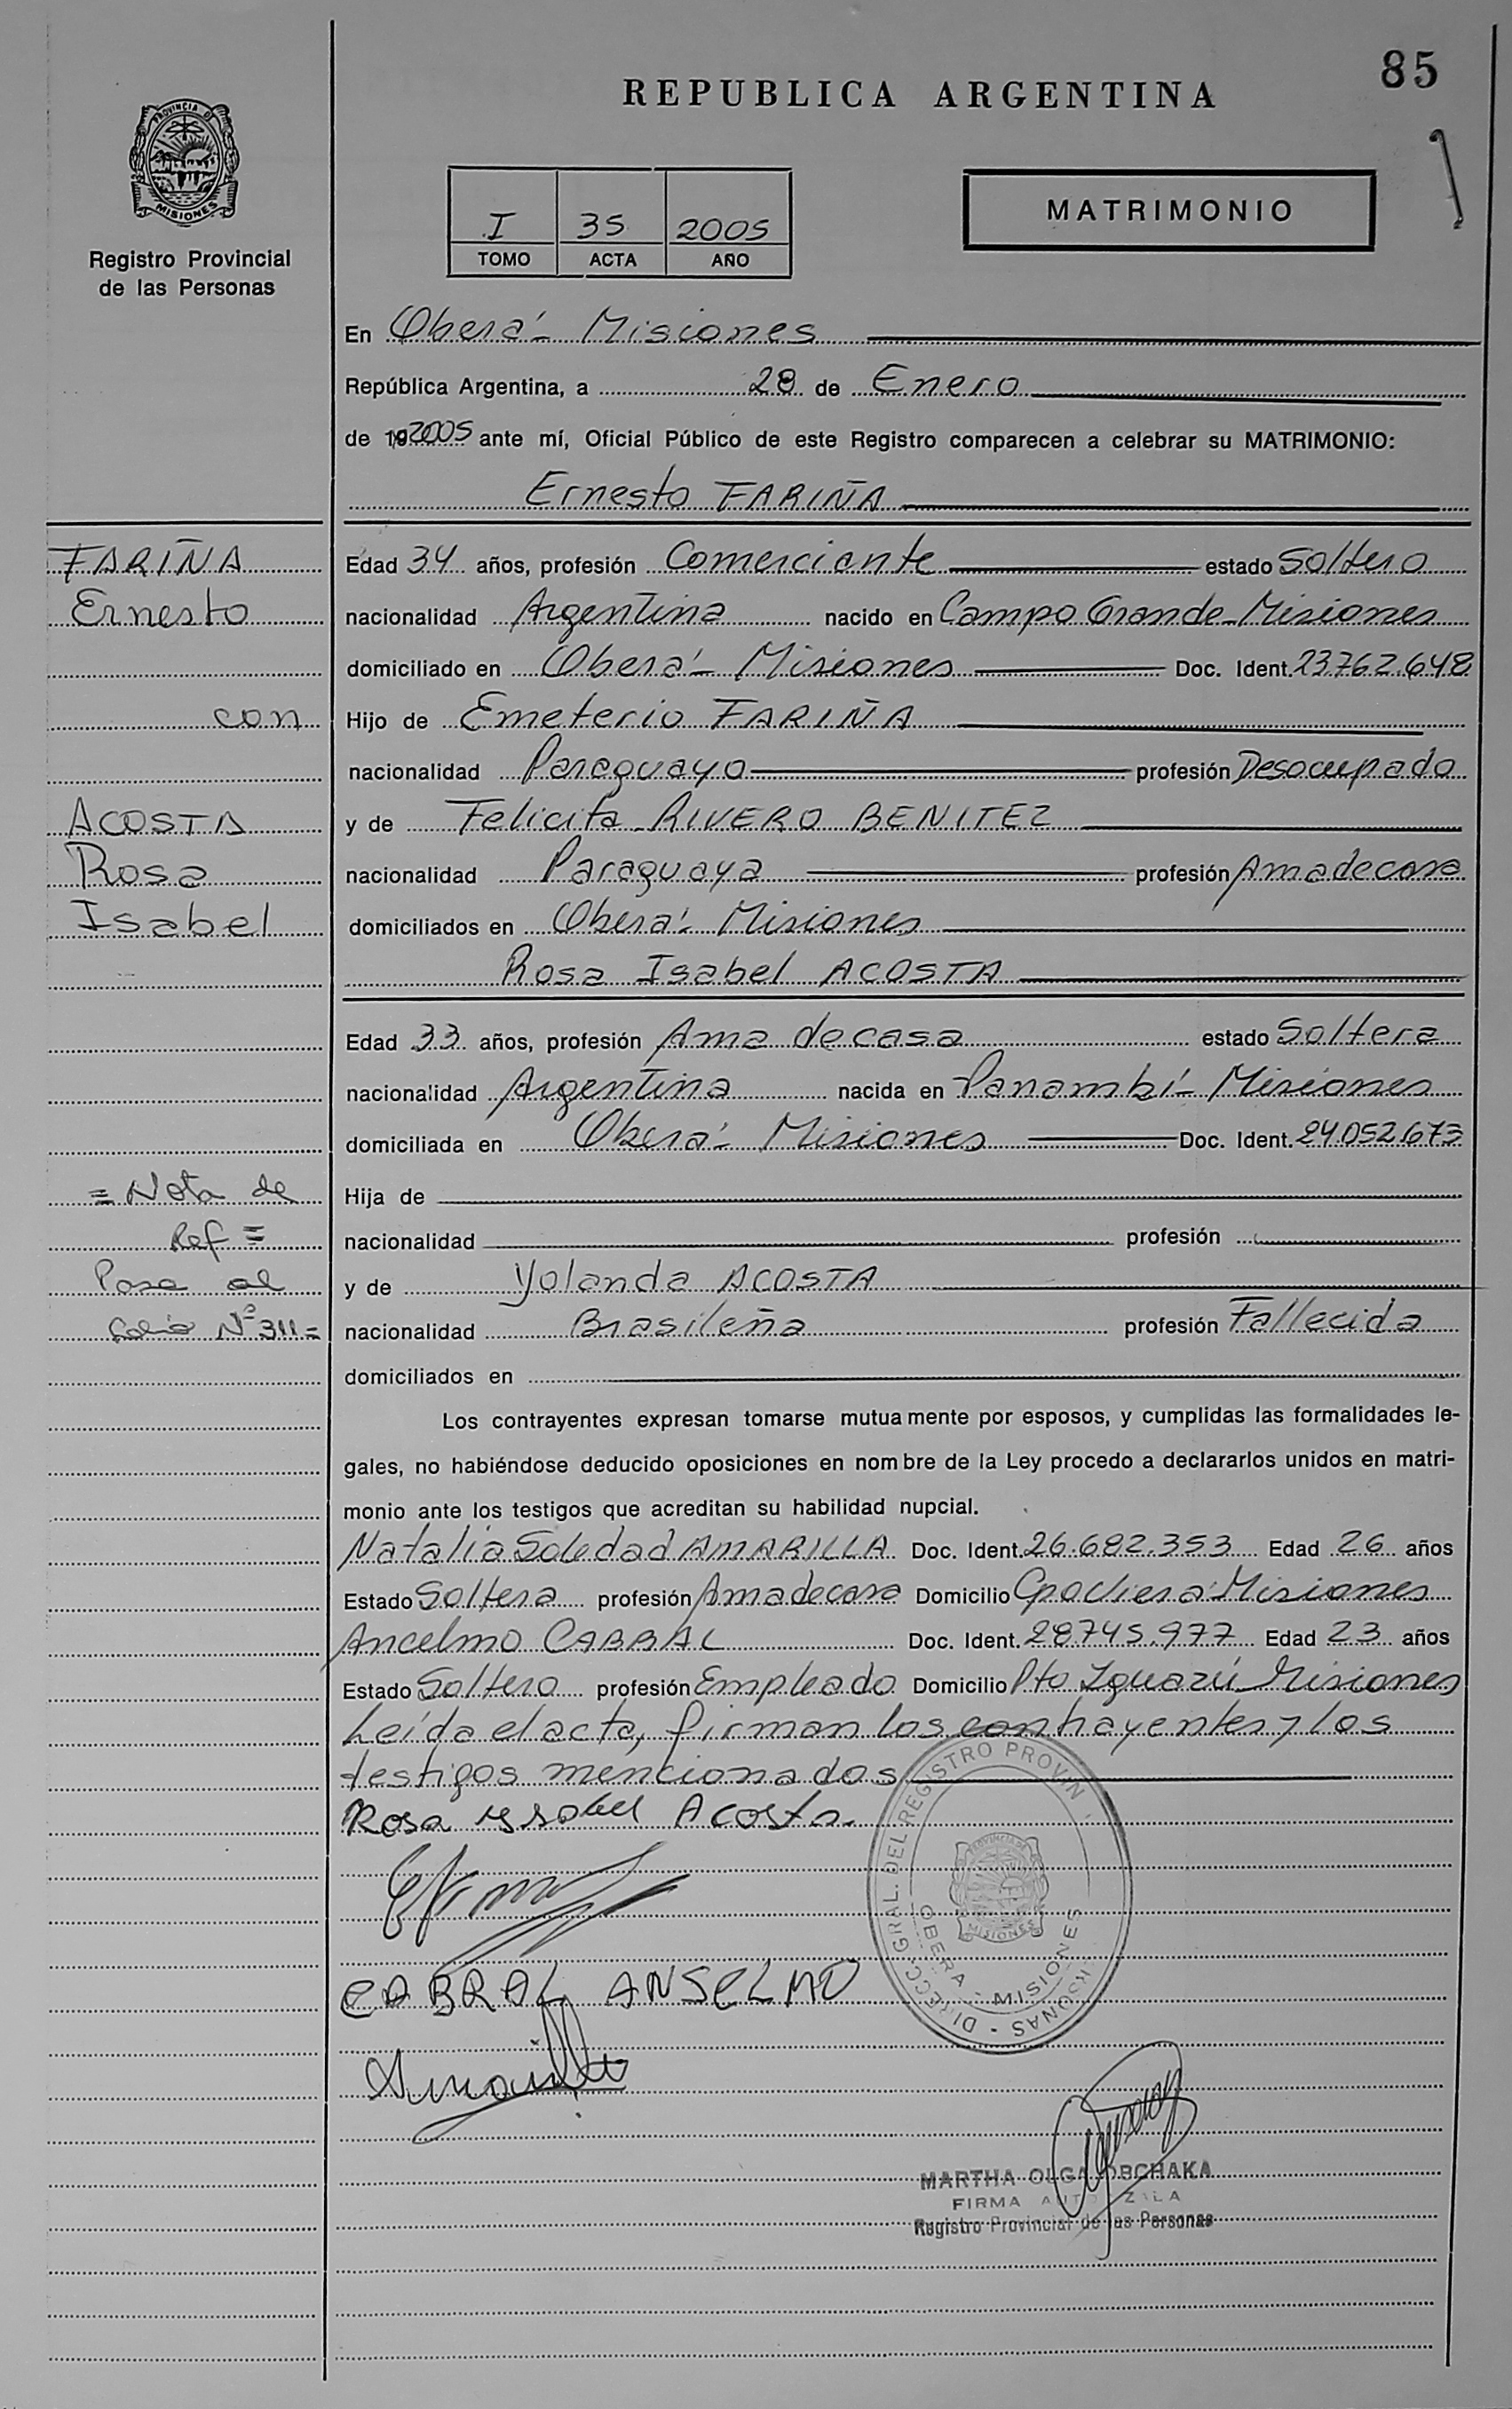 85
REPUBLICA ARGENTINA
PROVINCIA DE
MISIONES
Registro Provincial
de las Personas
I 35 2005
TOMO ACTA AÑO
MATRIMONIO
En Oberá - Misiones
República Argentina, a 28 de Enero
de 192005 ante mí, Oficial Público de este Registro comparecen a celebrar su MATRIMONIO:
Ernesto FARIÑA
FARIÑA
Ernesto
con
ACOSTA
Rosa
Isabel
Edad 34 años, profesión Comerciante estado Soltero
nacionalidad Argentina nacido en Campo Grande-Misiones
domiciliado en Oberá - Misiones Doc. Ident. 23.762.648
Hijo de Emeterio FARIÑA
nacionalidad Paraguayo profesión Desocupado
y de Felicita RIVERO BENITEZ
nacionalidad Paraguaya profesión Amadecasa
domiciliados en Oberá - Misiones
Rosa Isabel ACOSTA
Edad 33 años, profesión Ama decasa estado Soltera
nacionalidad Argentina nacida en Panambí - Misiones
domiciliada en Oberá - Misiones Doc. Ident. 24.052.673
= Nota de
Ref =
Pasa al
folio Nº 311=
Hija de
nacionalidad profesión
y de Yolanda ACOSTA
nacionalidad Brasileña profesión Fallecida
domiciliados en
Los contrayentes expresan tomarse mutuamente por esposos, y cumplidas las formalidades le-
gales, no habiéndose deducido oposiciones en nombre de la Ley procedo a declararlos unidos en matri-
monio ante los testigos que acreditan su habilidad nupcial.
Natalia Soledad AMARILLA Doc. Ident. 26.682.353 Edad 26 años
Estado Soltera profesión Amadecasa Domicilio Misiones
Ancelmo CABRAL Doc. Ident. 28.745.977 Edad 23 años
Estado Soltero profesión Empleado Domicilio Pto Iguazú Misiones
Leída el acta, firman los contrayentes y los
testigos mencionados
Rosa Ysabel Acosta.
CABRAL ANSELMO
DIRECC. GRAL. DEL REGISTRO PROVIN
SONAS
PROVINCIA DE
MISIONES
OBERA - MISIONES
MARTHA OLGA
FIRMA
Registro Provincial de las Personas